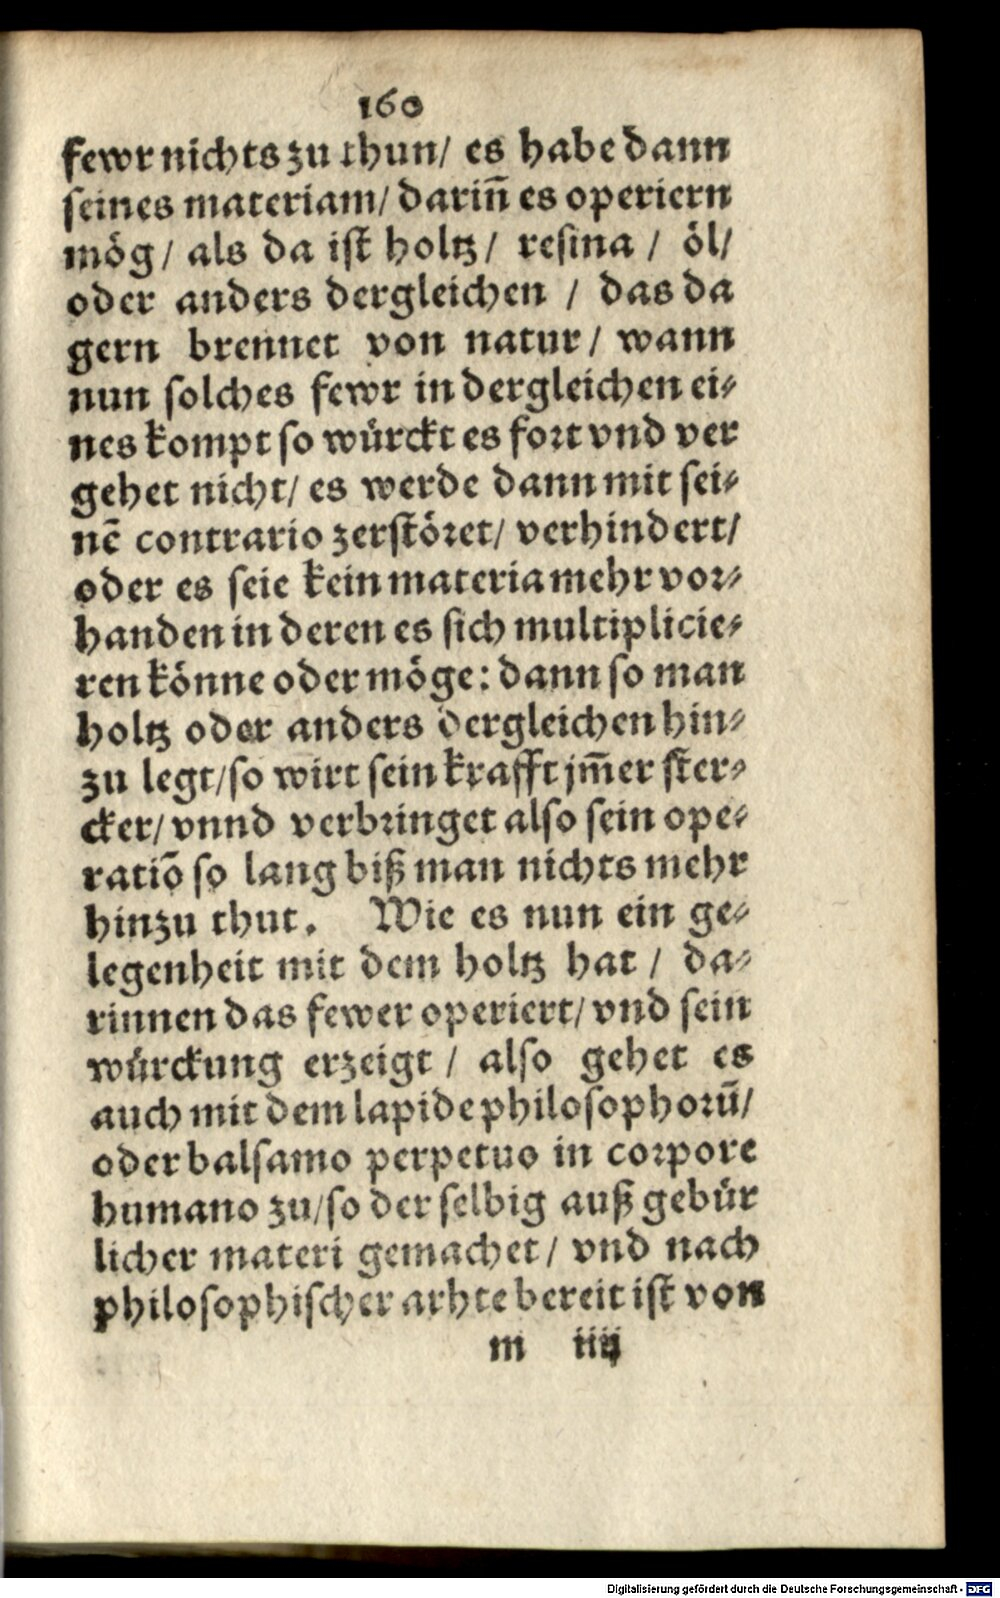 160
fewr nichts zu thun/ es habe dann
seines materiam/ dariñ es operiern
mög/ als da ist holtz/ resina / öl/
oder anders dergleichen / das da
gern brennet von natur/ wann
nun solches fewr in dergleichen ei⸗
nes kompt so würckt es fort vnd ver
gehet nicht/ es werde dann mit sei⸗
nē contrario zerstöret/ verhindert/
oder es seie kein materia mehr vor⸗
handen in deren es sich multiplicie⸗
ren könne oder möge: dann so man
holtz oder anders dergleichen hin⸗
zu legt/so wirt sein krafft jm̃er ster⸗
cker/ vnnd verbringet also sein ope⸗
ratiõ so lang biß man nichts mehr
hinzu thut. Wie es nun ein ge⸗
legenheit mit dem holtz hat / da⸗
rinnen das fewer operiert/ vnd sein
würckung erzeigt / also gehet es
auch mit dem lapide philosophorũ/
oder balsamo perpetuo in corpore
humano zu/so der selbig auß gebür
licher materi gemachet/ vnd nach
philosophischer arhte bereit ist von
m iiij
Digitalisierung gefördert durch die Deutsche Forschungsgemeinschaft - DFG